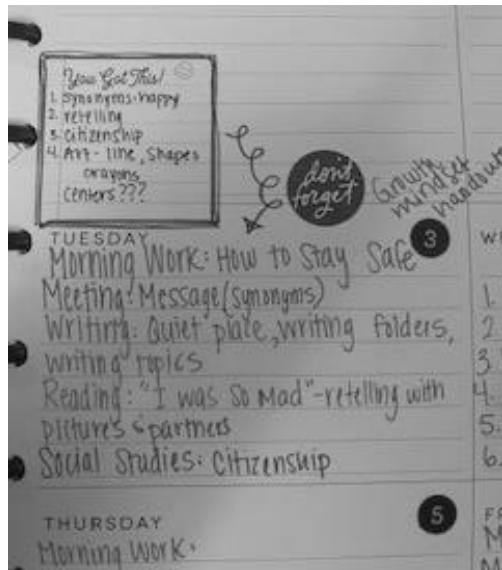 You Got This!
1. Synonyms-happy
2. retelling
3. Citizenship
4. Art - line, shapes
crayons,
Centers???
don't
forget
Growth
mindset
handouts
TUESDAY
3
Morning Work: How to Stay Safe
Meeting: Message (synonyms)
Writing: Quiet place, writing folders,
writing topics
Reading: "I was so mad" -retelling with
pictures & partners
Social Studies: Citizenship
THURSDAY
5
Morning Work:
W
1.
2.
3.
4.
5.
6.
FR
M